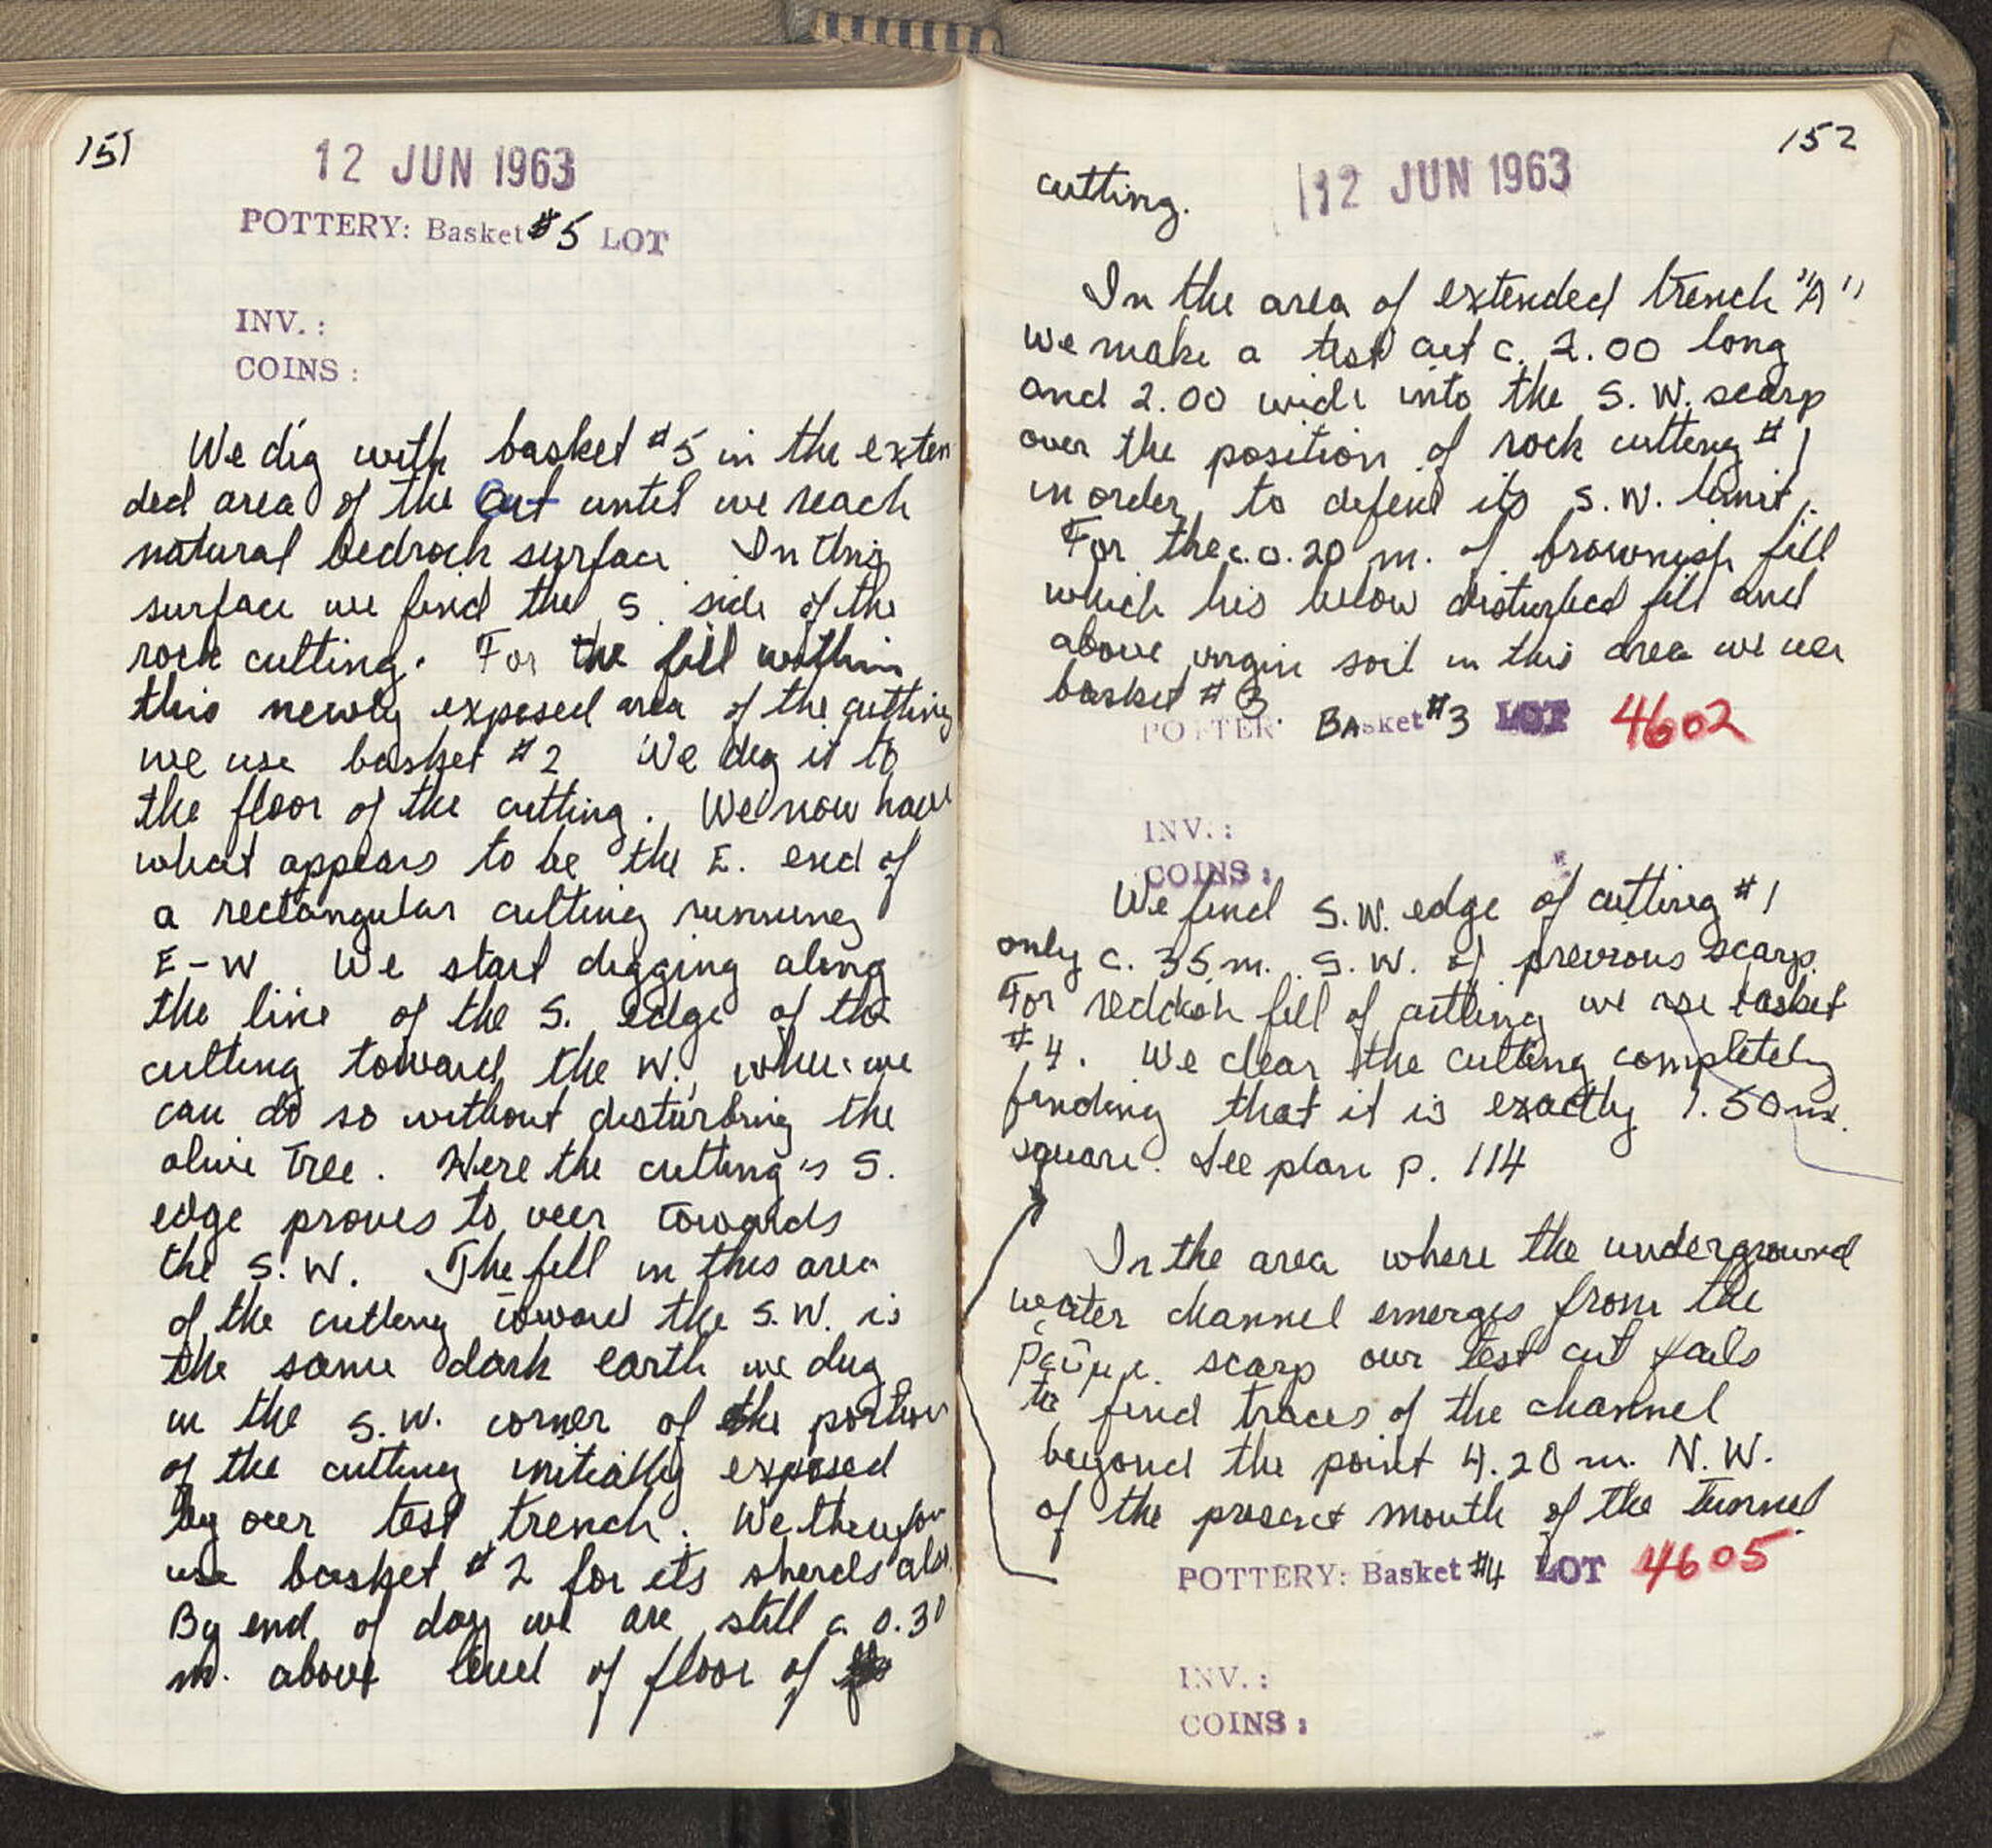 151
12 JUN 1963
POTTERY: Basket #5 LOT
INV.:
COINS:
We dig with basket #5 in the exten
ded area of the cut until we reach
natural bedrock surface In this
surface we find the S. side of the
rock cutting. For the fill within
this newly exposed area of the cutting
we use basket #2 We dig it to
the floor of the cutting. We now have
what appears to be the E. end of
a rectangular cutting running
E-W We start digging along
the line of the S. edge of the
cutting toward the W., where we
can do so without disturbing the
olive tree. Here the cutting's S.
edge proves to veer towards
the S.W. The fill in this area
of the cutting toward the S.W. is
the same dark earth we dug
in the S.W. corner of the portion
of the cutting initially exposed
by our test trench. We therefore
use basket #2 for its sherds also.
By end of day we are still c. 0.30
m. above level of floor of
152
12 JUN 1963
cutting.
In the area of extended trench "A"
we make a test cut c. 2.00 long
and 2.00 wide into the S.W. scarp
over the position of rock cutting #1
in order to defend its S.W. limit.
For the c. 0.20 m. of brownish fill
which lies below disturbed fill and
above virgin soil in this area we use
basket #3.
POTTER Basket #3 LOT 4602
INV.:
COINS:
We find S.W. edge of cutting #1
only c. 35 m. S.W. of previous scarp.
For reddish fill of cutting we use basket
#4. We clear the cutting completely
finding that it is exactly 1.50 m.
square. See plan p. 114
In the area where the underground
water channel emerges from the
ρεῦμα scarp our test cut fails
to find traces of the channel
beyond the point 4.20 m. N.W.
of the present mouth of the tunnel
POTTERY: Basket #4 LOT 4605
INV.:
COINS: